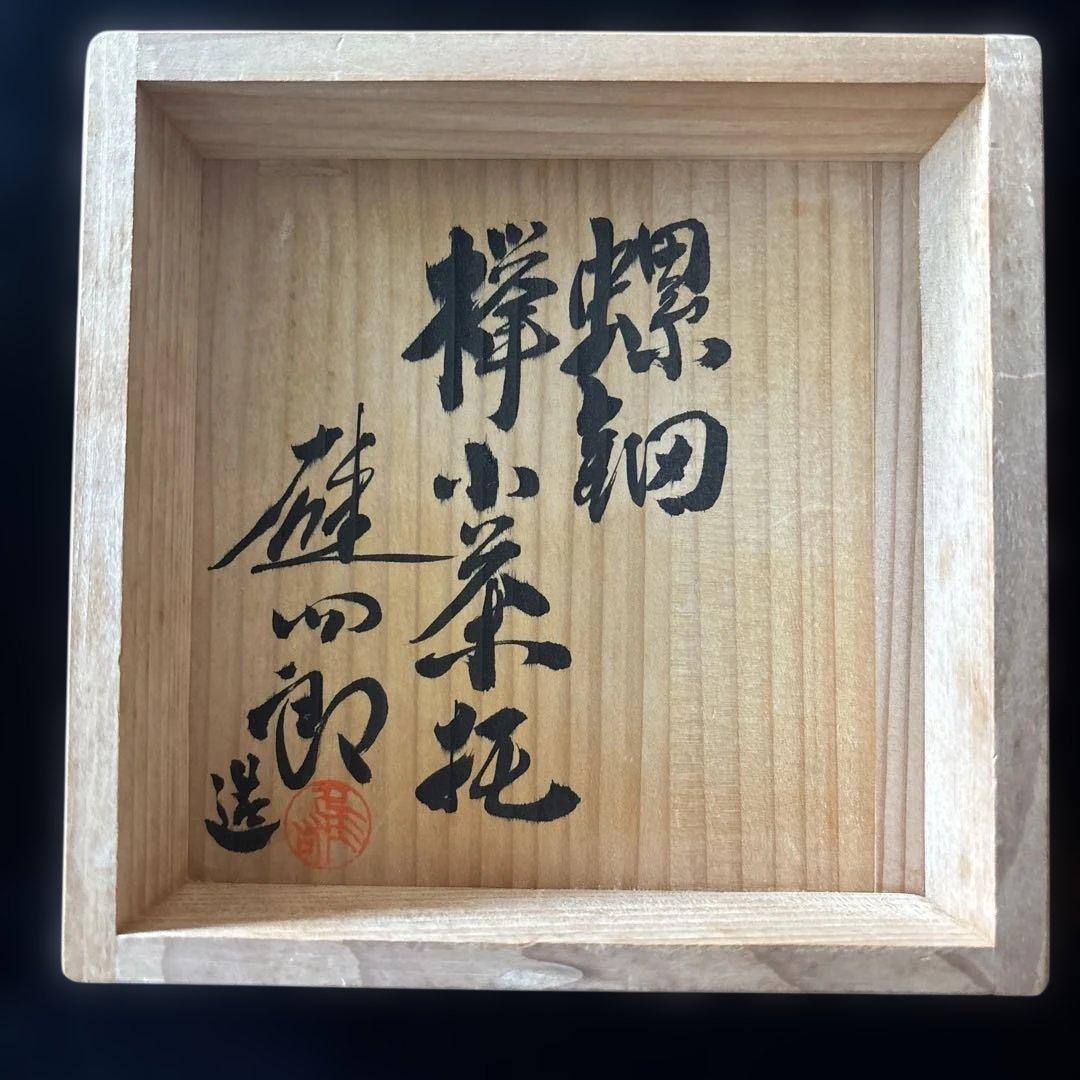 螺鈿
欅小茶托
四郎
造